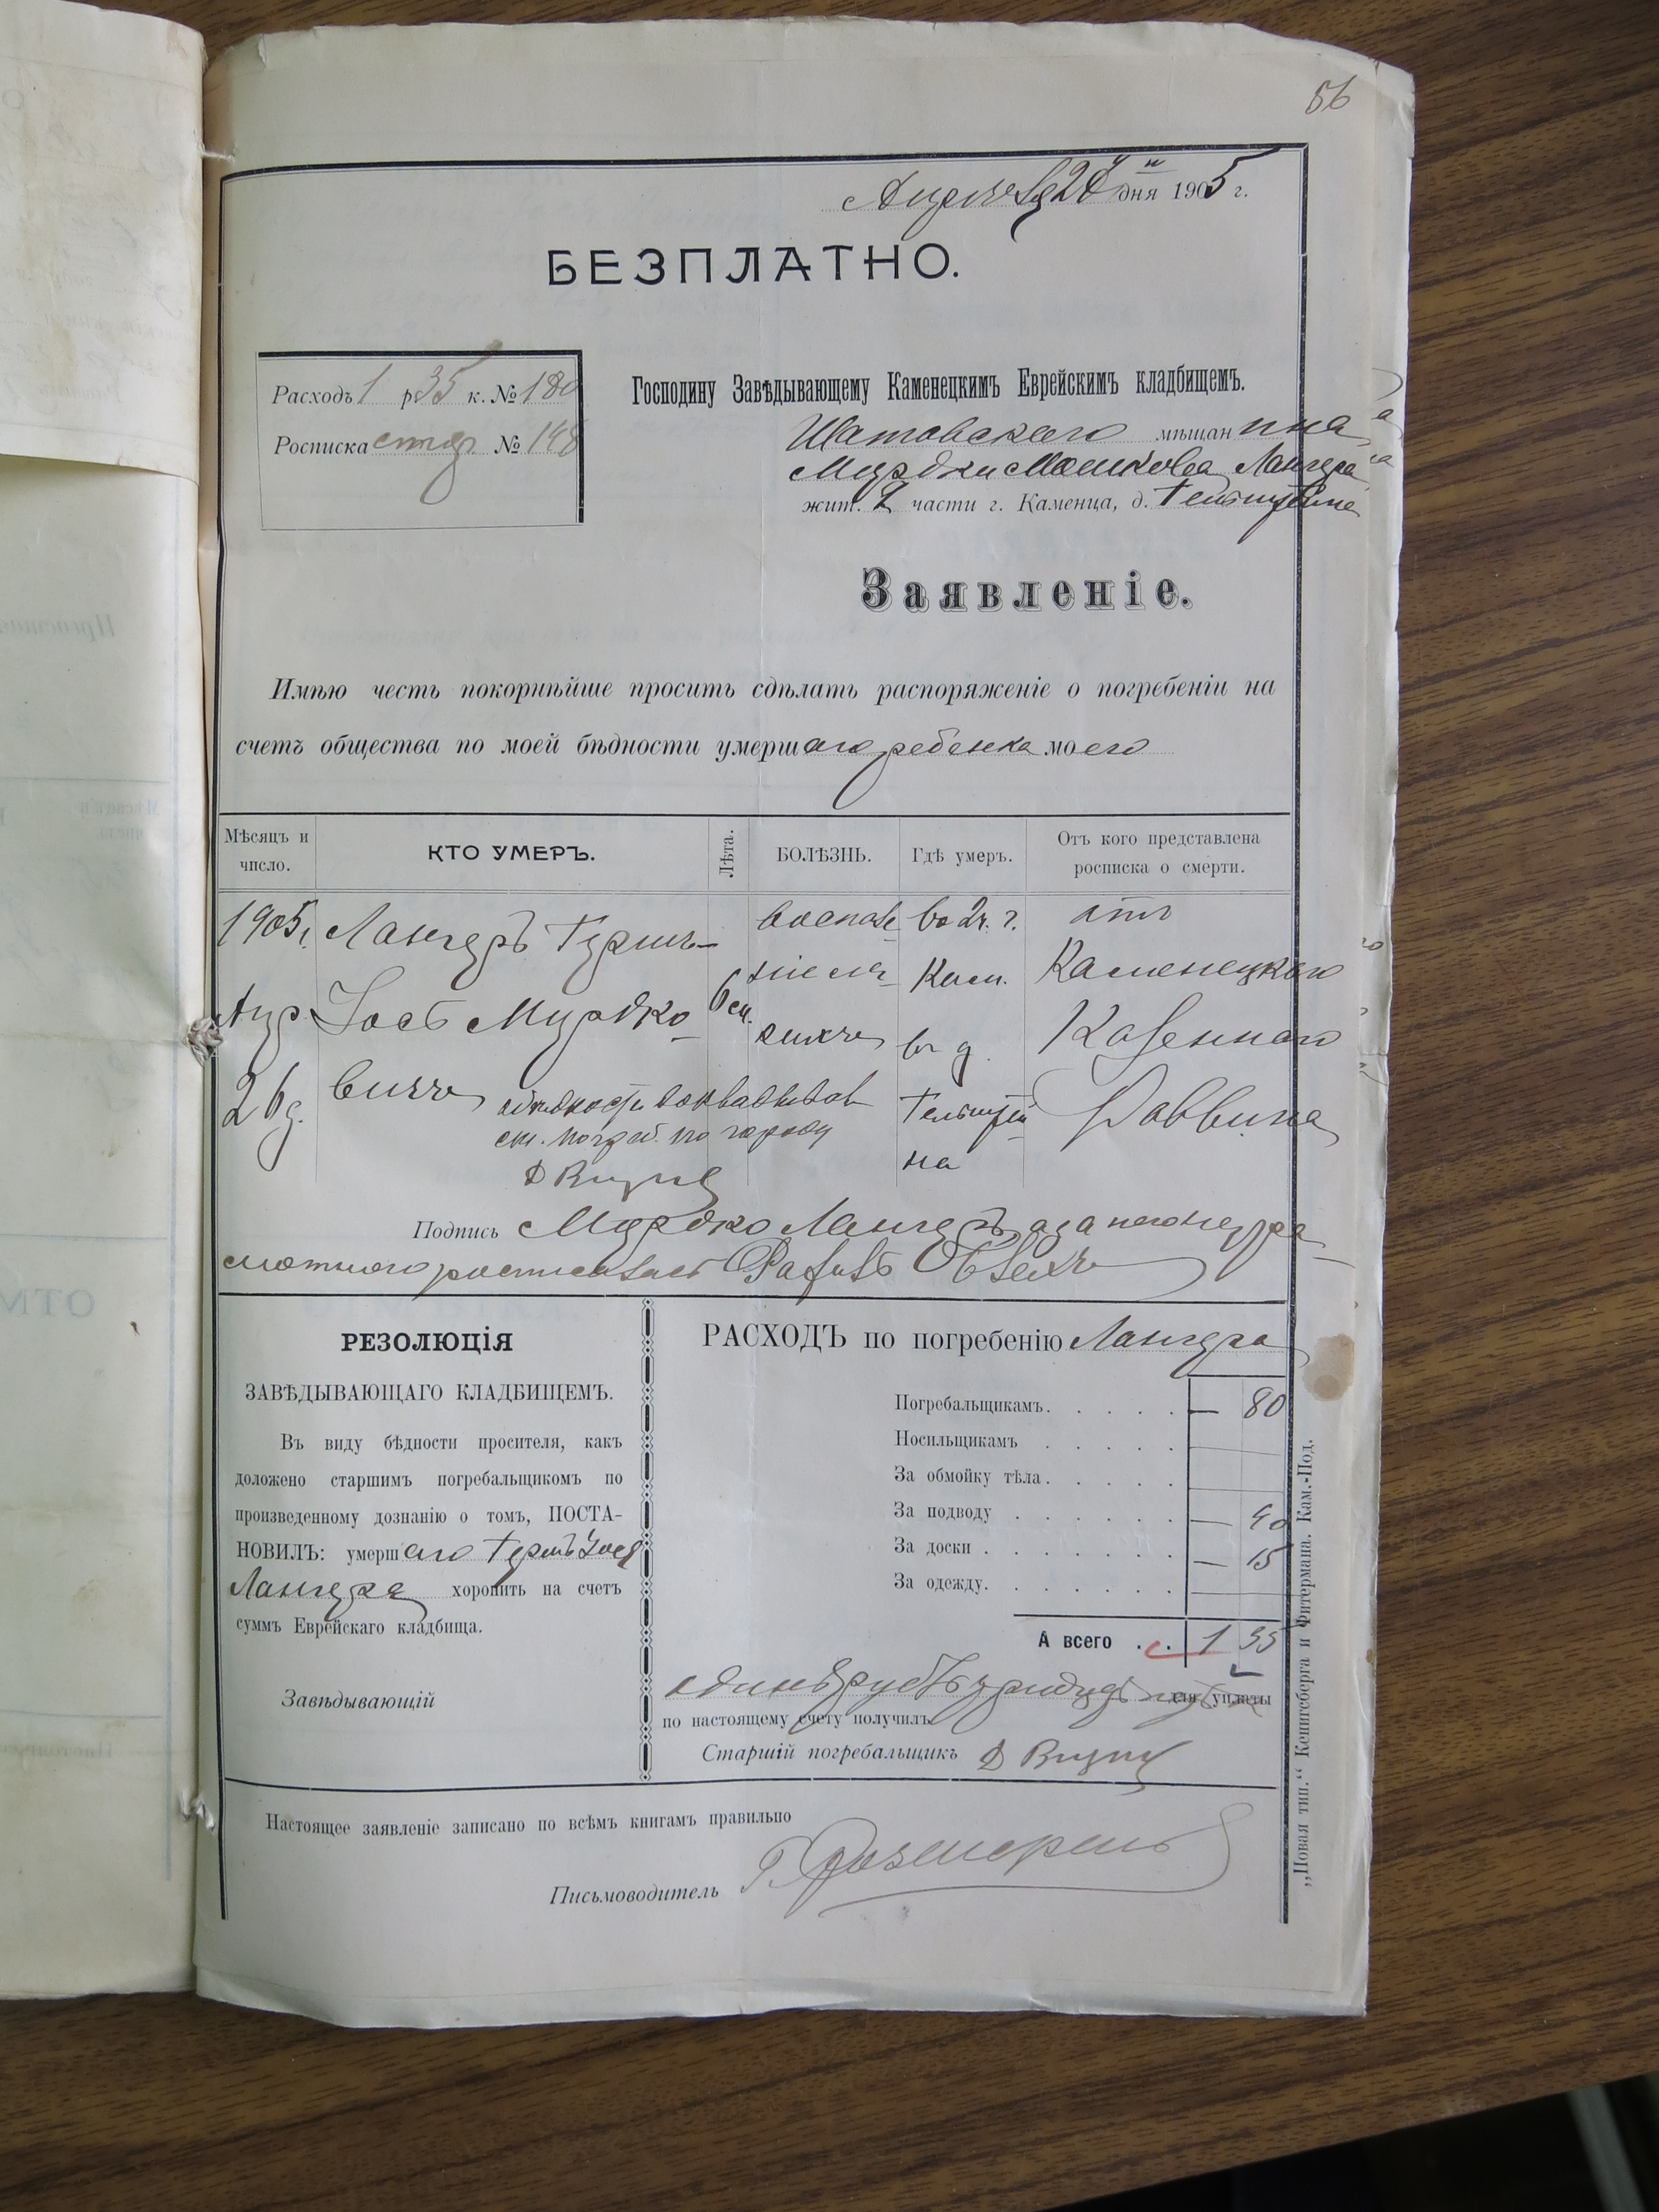 56
Апреля 26 дня 1905 г.
БЕЗПЛАТНО.
Расходъ 1 р 35 к. № 180
Росписка № 148
Господину Завѣдывающему Каменецкимъ Еврейскимъ кладбищемъ.
Шатавскаго мѣщанина
Мурдки Мошкова Лангера
жит. 2 части г. Каменца, д. Гельштейна
Заявленіе.
Имѣю честь покорнѣйше просить сдѣлать распоряженіе о погребеніи на
счетъ общества по моей бѣдности умершаго ребенка моего
Мѣсяцъ и число.
КТО УМЕРЪ.
Лѣта.
БОЛѢЗНЬ.
Гдѣ умеръ.
Отъ кого представлена росписка о смерти.
1905 г. Лангеръ Гершъ- воспале во 2 ч. г. отъ
Апр. Іось Мурдко- 6 м. ніе лег- Кам. Каменецкаго
26 д. вичъ кихъ въ д. Казеннаго
Гельштей- Раввина
на
по городу
Подпись Мурдко Лангеръ а за него негра-
мотного росписался
РЕЗОЛЮЦІЯ
ЗАВѢДЫВАЮЩАГО КЛАДБИЩЕМЪ.
Въ виду бѣдности просителя, какъ
доложено старшимъ погребальщикомъ по
произведенному дознанію о томъ, ПОСТА-
НОВИЛЪ: умершаго Гершъ Іося
Лангера хоронить на счетъ
суммъ Еврейскаго кладбища.
Завѣдывающій
РАСХОДЪ по погребенію Лангера
Погребальщикамъ. . . . . — 80
Носильщикамъ . . . . .
За обмойку тѣла . . . . .
За подводу . . . . . . — 40
За доски . . . . . . . — 15
За одежду. . . . . . .
А всего . . 1 35
одинъ рубль тридцать пять для уплаты
по настоящему счету получилъ
Старшій погребальщикъ
Настоящее заявленіе записано по всѣмъ книгамъ правильно
Письмоводитель
„Новая тип.“ Кенигсберга и Фитермана. Кам.-Под.